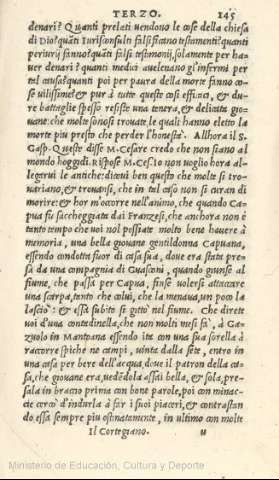 TERZO. 145
denari? Quanti prelati vendono le cose della chiesa
di Dio? quāti Iurisconsulti falsificano testamenti? quanti
periurij fanno? quāti falsi testimonij, solamente per ha=
uer denari? quanti medici auelenano gl'infermi per
tal causa? quanti poi per paura della morte fanno co=
se uilissime? & pur à tutte queste cosi efficaci, & du=
re battaglie spesso resiste una tenera, & delicata gio=
uane: che molte sonosi trouate, le quali hanno eletto la
morte piu presto che perder l'honestà. Allhora il S.
Gasp. Queste disse M. Cesare credo che non siano al
mondo hoggidi. Rispose M. Ces. Io non uoglio hora al=
legarui le antiche: dicoui ben questo che molte si tro=
uariano, & trouansi, che in tal caso non si curan di
morire: & hor m'occorre nell'animo, che quando Ca=
pua fu saccheggiata dai Franzesi, che anchora non è
tanto tempo che uoi nol possiate molto bene hauere à
memoria, una bella giouane gentildonna Capuana,
essendo condotta fuor di casa sua, doue era stata pre=
sa da una compagnia di Guasconi, quando giunse al
fiume, che passa per Capua, finse volersi attaccare
una scarpa, tanto che colui, che la menaua, un poco la
lasciò: & essa subito si gittò nel fiume. Che direte
voi d'una contadinella, che non molti mesi fà, à Ga=
zuolo in Mantoana essendo ita con una sua sorella à
raccorre spiche ne campi, uinta dalla sete, entro in
una casa per bere dell'acqua, doue il patron della ca=
sa, che giouane era, uedēdola assai bella, & sola, pre=
sala in braccio prima con bone parole, poi con minac=
cie cercò d'indurla à far i suoi piaceri, & contrastan
do essa sempre piu ostinatamente, in ultimo con molte
Il Cortegiano. u
Ministerio de Educación, Cultura y Deporte